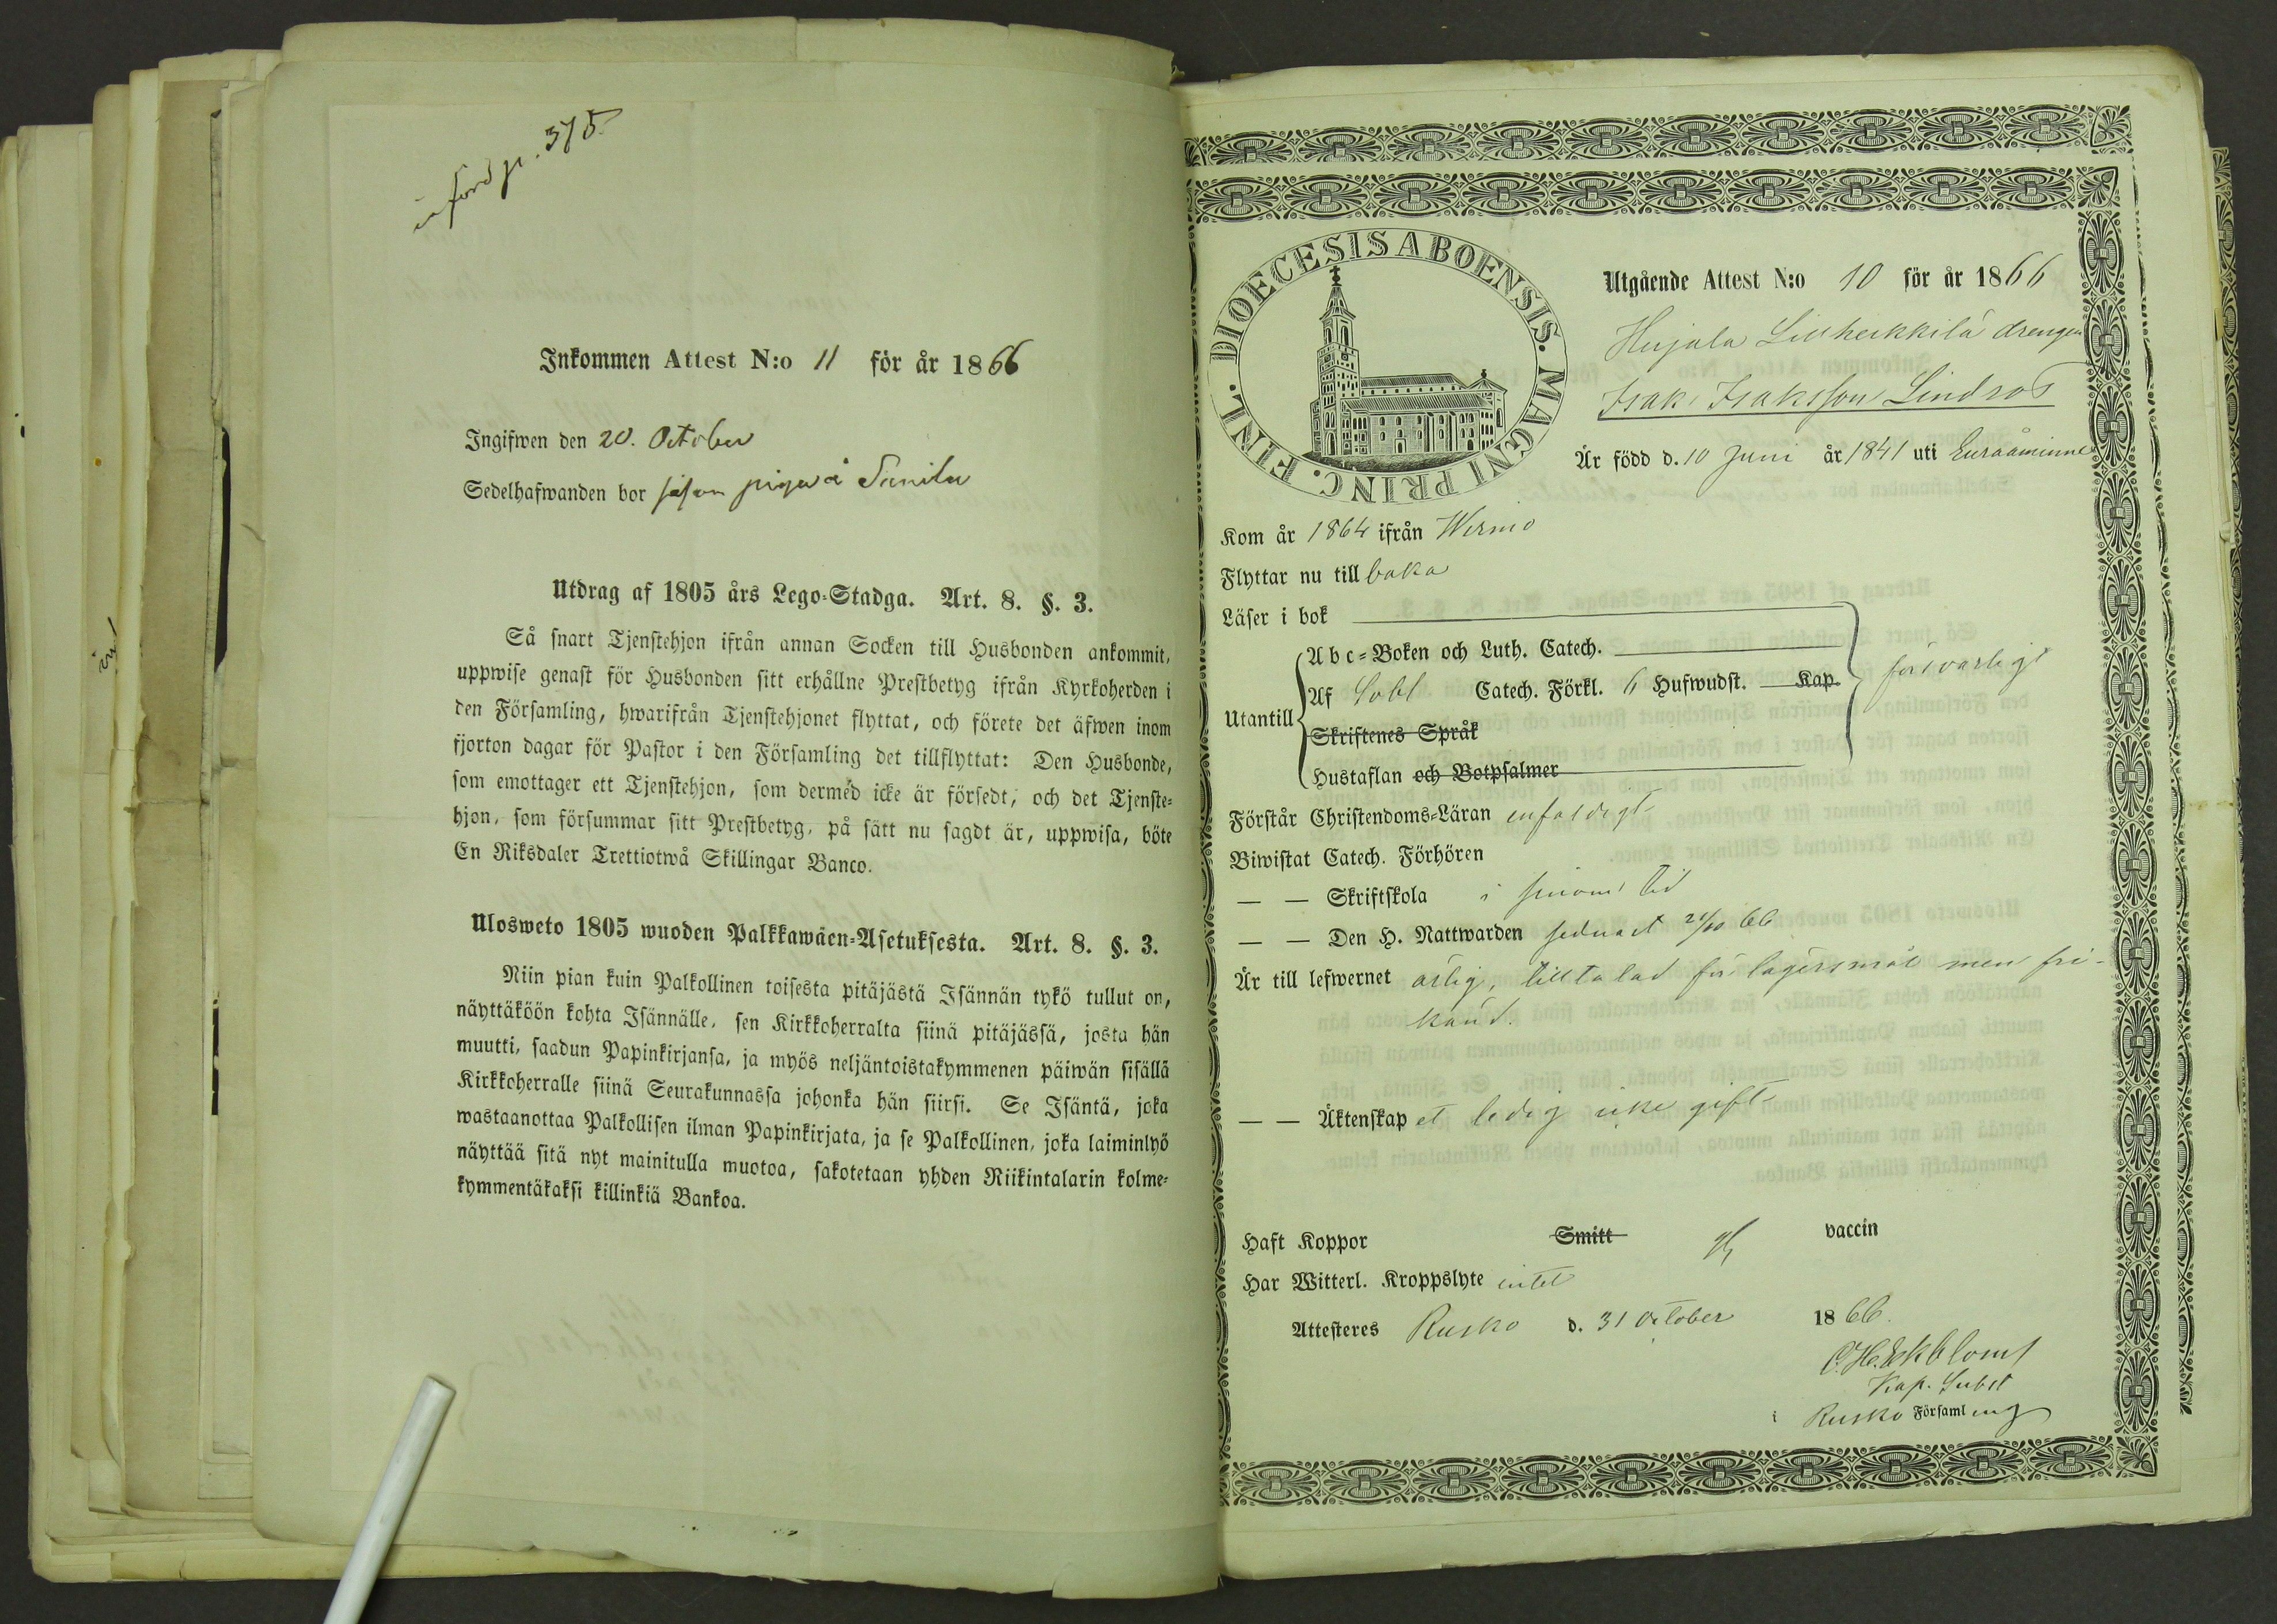 införd p. 375
Inkommen Attest N:o 11 för år 1866
Ingifwen den 20. October
Sedelhafwanden bor såsom piga å
Utdrag af 1805 års Lego-Stadga. Art. 8. §. 3.
Så snart Tjenstehjon ifrån annan Socken till Husbonden ankommit,
uppwise genast för Husbonden sitt erhållne Prestbetyg ifrån Kyrkoherden i
den Församling, hwarifrån Tjenstehjonet flyttat, och förete det äfwen inom
fjorton dagar för Pastor i den Församling det tillflyttat: Den Husbonde,
som emottager ett Tjenstehjon, som dermed icke är försedt, och det Tjenste-
hjon, som försummar sitt Prestbetyg, på sätt nu sagdt är, uppwisa, böte
En Riksdaler Trettiotwå Skillingar Banco.
Ulosweto 1805 wuoden Palkkawäen-Asetuksesta. Art. 8. §. 3.
Niin pian kuin Palkollinen toisesta pitäjästä Isännän tykö tullut on,
näyttäköön kohta Isännälle, sen Kirkkoherralta siinä pitäjässä, josta hän
muutti, saadun Papinkirjansa, ja myös neljäntoistakymmenen päiwän sisällä
Kirkkoherralle siinä Seurakunnassa johonka hän siirsi. Se Isäntä, joka
wastaanottaa Palkollisen ilman Papinkirjata, ja se Palkollinen, joka laiminlyö
näyttää sitä nyt mainitulla muotoa, sakotetaan yhden Riikintalarin kolme-
kymmentäkaksi killinkiä Bankoa.
DIOECESIS ABOENSIS. MAGNI PRINC. FINL.
Utgående Attest N:o 10 för år 1866
Hujala Lillheikkilä drengen
Isak Isaksson Lindros
Är född d. 10 Juni år 1841 uti Euraåminne
Kom år 1864 ifrån Wirmo
Flyttar nu tillbaka
Läser i bok
Utantill
Abc-Boken och Luth. Catech.
Af Catech. Förkl. 6 Hufwudst. Kap.
försvarligt
Skriftenes Språk
Hustaflan och Botpsalmer
Förstår Christendoms-Läran enfaldigt
Biwistat Catech. Förhören
— — Skriftskola i sinom tid
— — Den H. Nattwarden senast 21/10 66
Är till lefwernet ärlig, tilltalad för lägersmål men fri-
känd.
— — Äktenskapet ledig icke gift
Haft Koppor Smitt vaccin
Har Witterl. Kroppslyte intet
Attesteres Rusko d. 31 October 1866.
C. H. Ekblom
Kap. Subst
i Rusko Församling